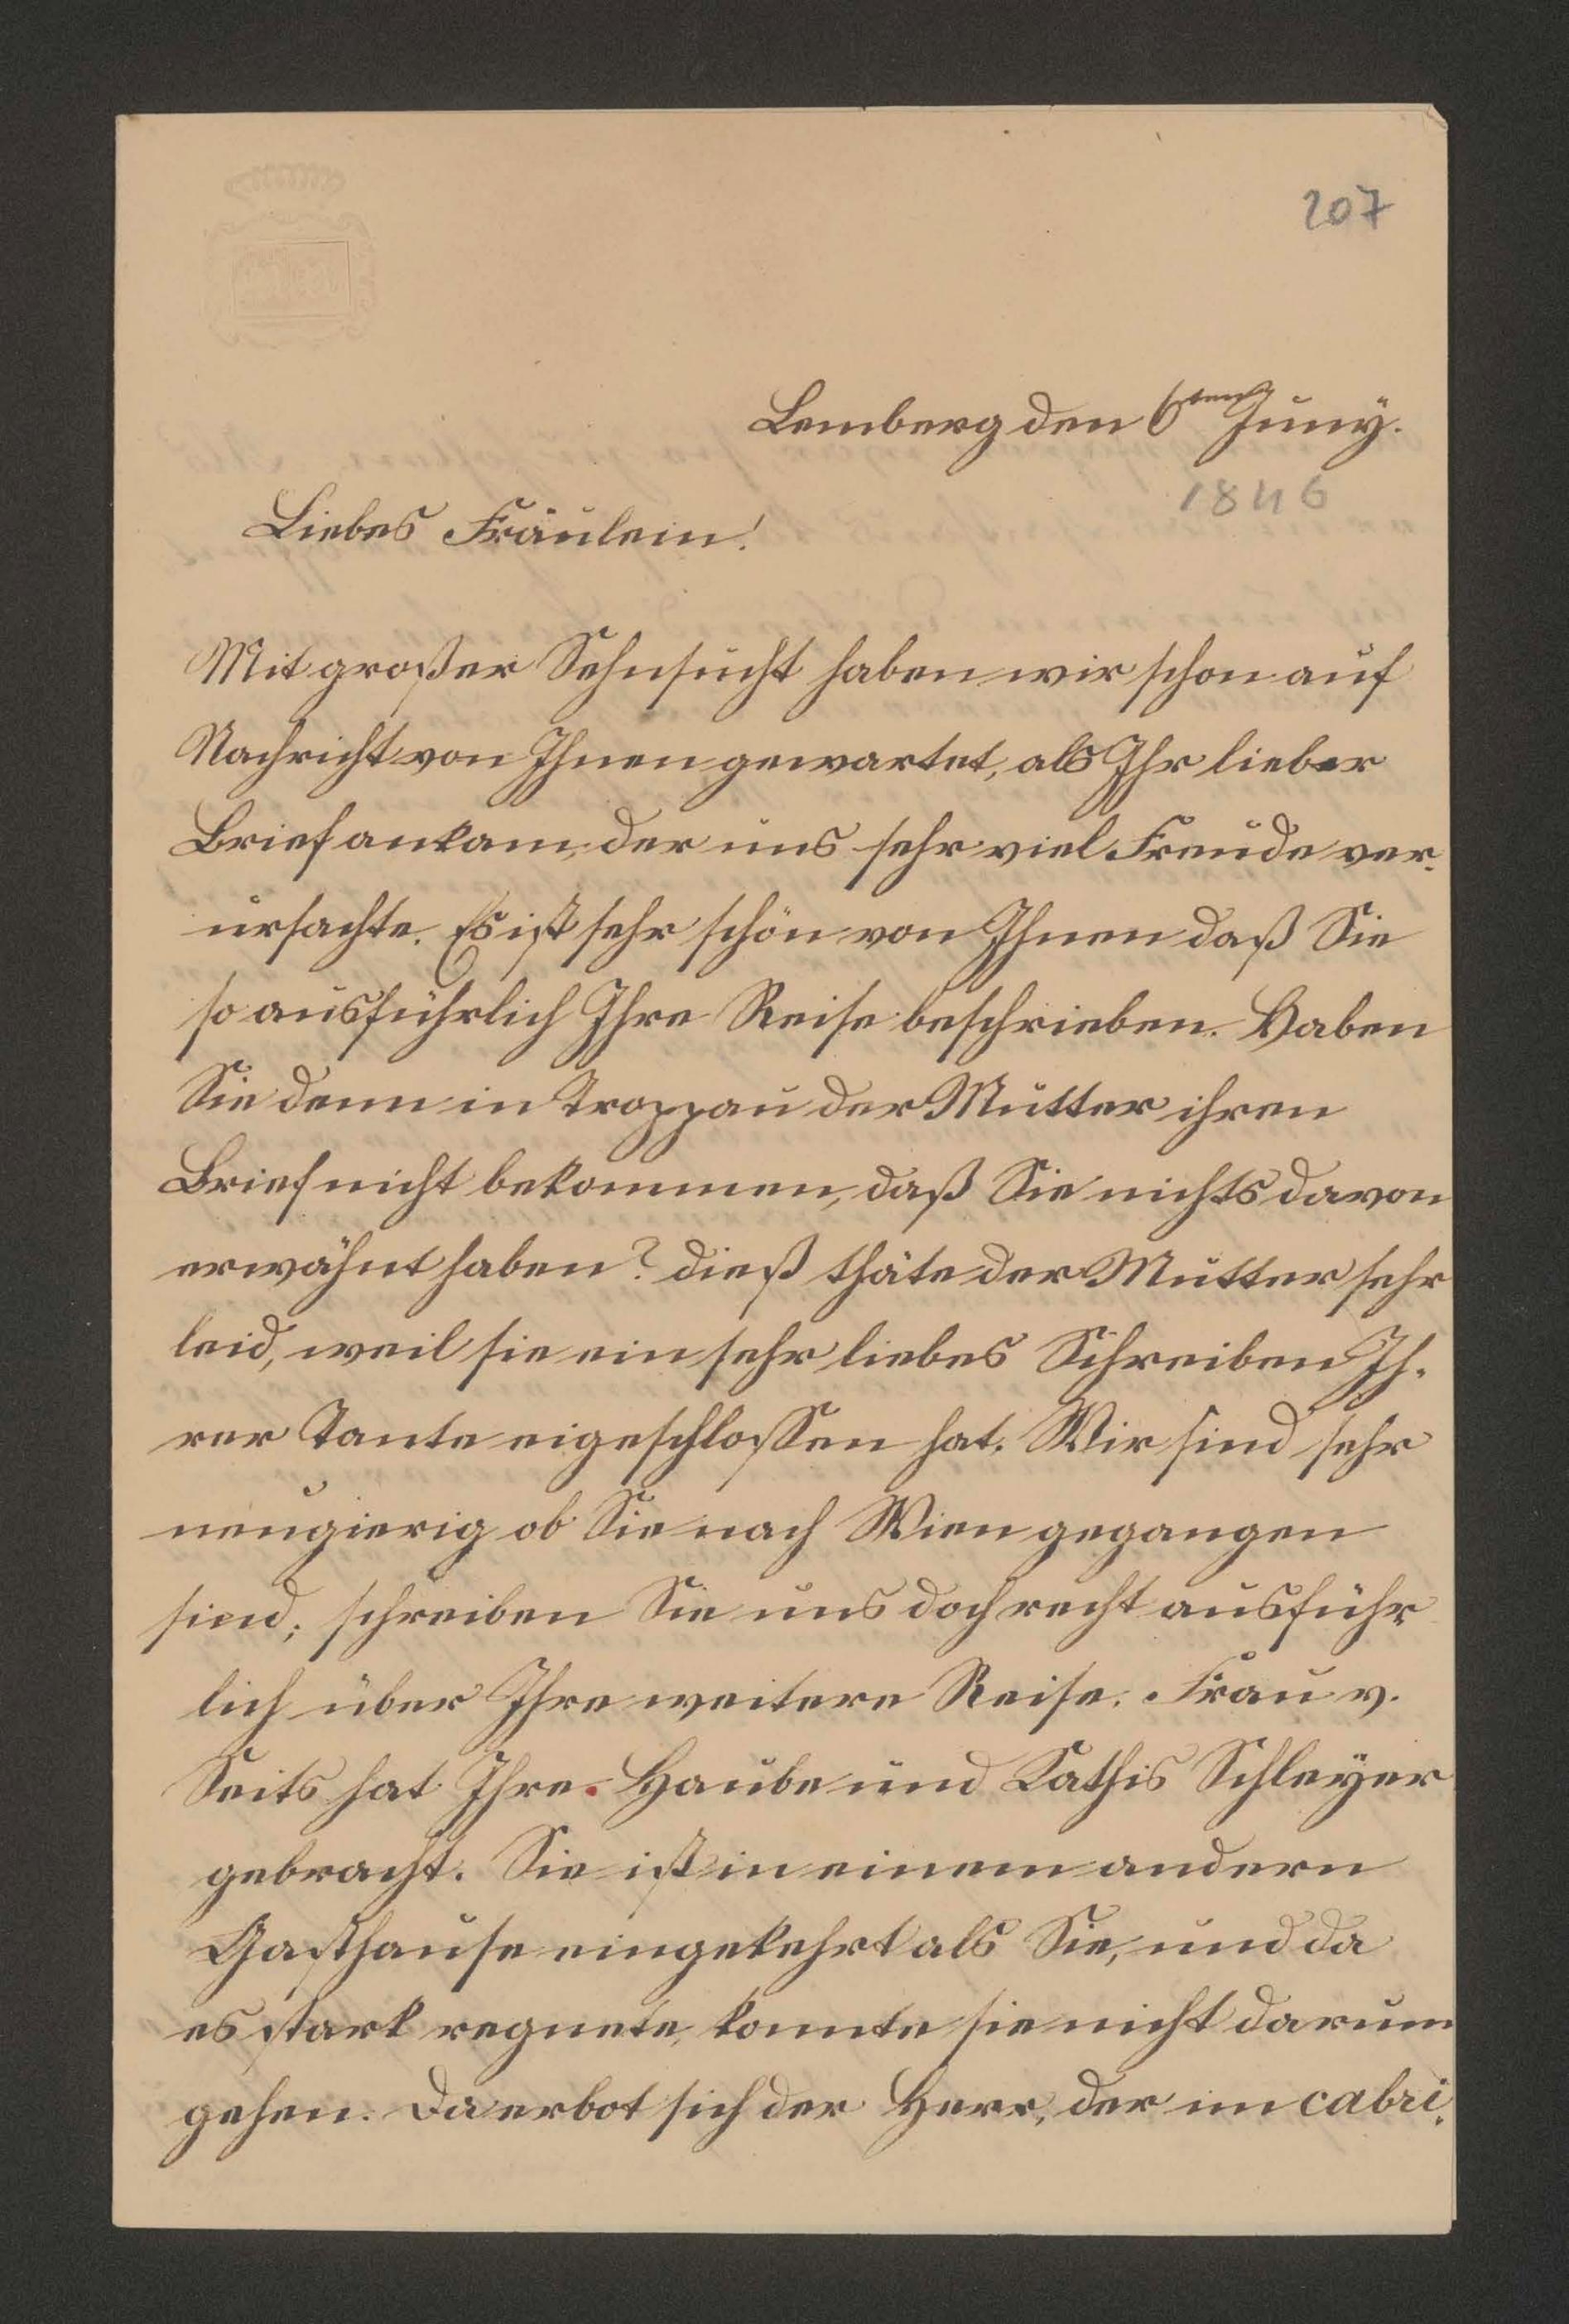 207
Lemberg den 6ten Juny.
1846
Liebes Fräulein!
Mit großer Sehnsucht haben wir schon auf
Nachricht von Ihnen gewartet, als Ihr lieber
Brief ankam, der uns sehr viel Freude ver-
ursachte. Es ist sehr schön von Ihnen daß Sie
so ausführlich Ihre Reise beschrieben. Haben
Sie denn in Troppau der Mutter ihren
Brief nicht bekommen, daß Sie nichts davon
erwähnt haben? dieß thäte der Mutter sehr
leid, weil sie ein sehr liebes Schreiben Ih-
rer Tante eigeschlossen hat. Wir sind sehr
neugierig ob Sie nach Wien gegangen
sind; schreiben Sie uns doch recht ausführ
lich über Ihre weitere Reise. Frau v.
Seits hat Ihre Haube und Kathis Schleyer
gebracht. Sie ist in einem andern
Gasthause eingekehrt als Sie, und da
es stark regnete, konnte sie nicht darum
gehen. Da erbot sich der Herr, der im cabri-